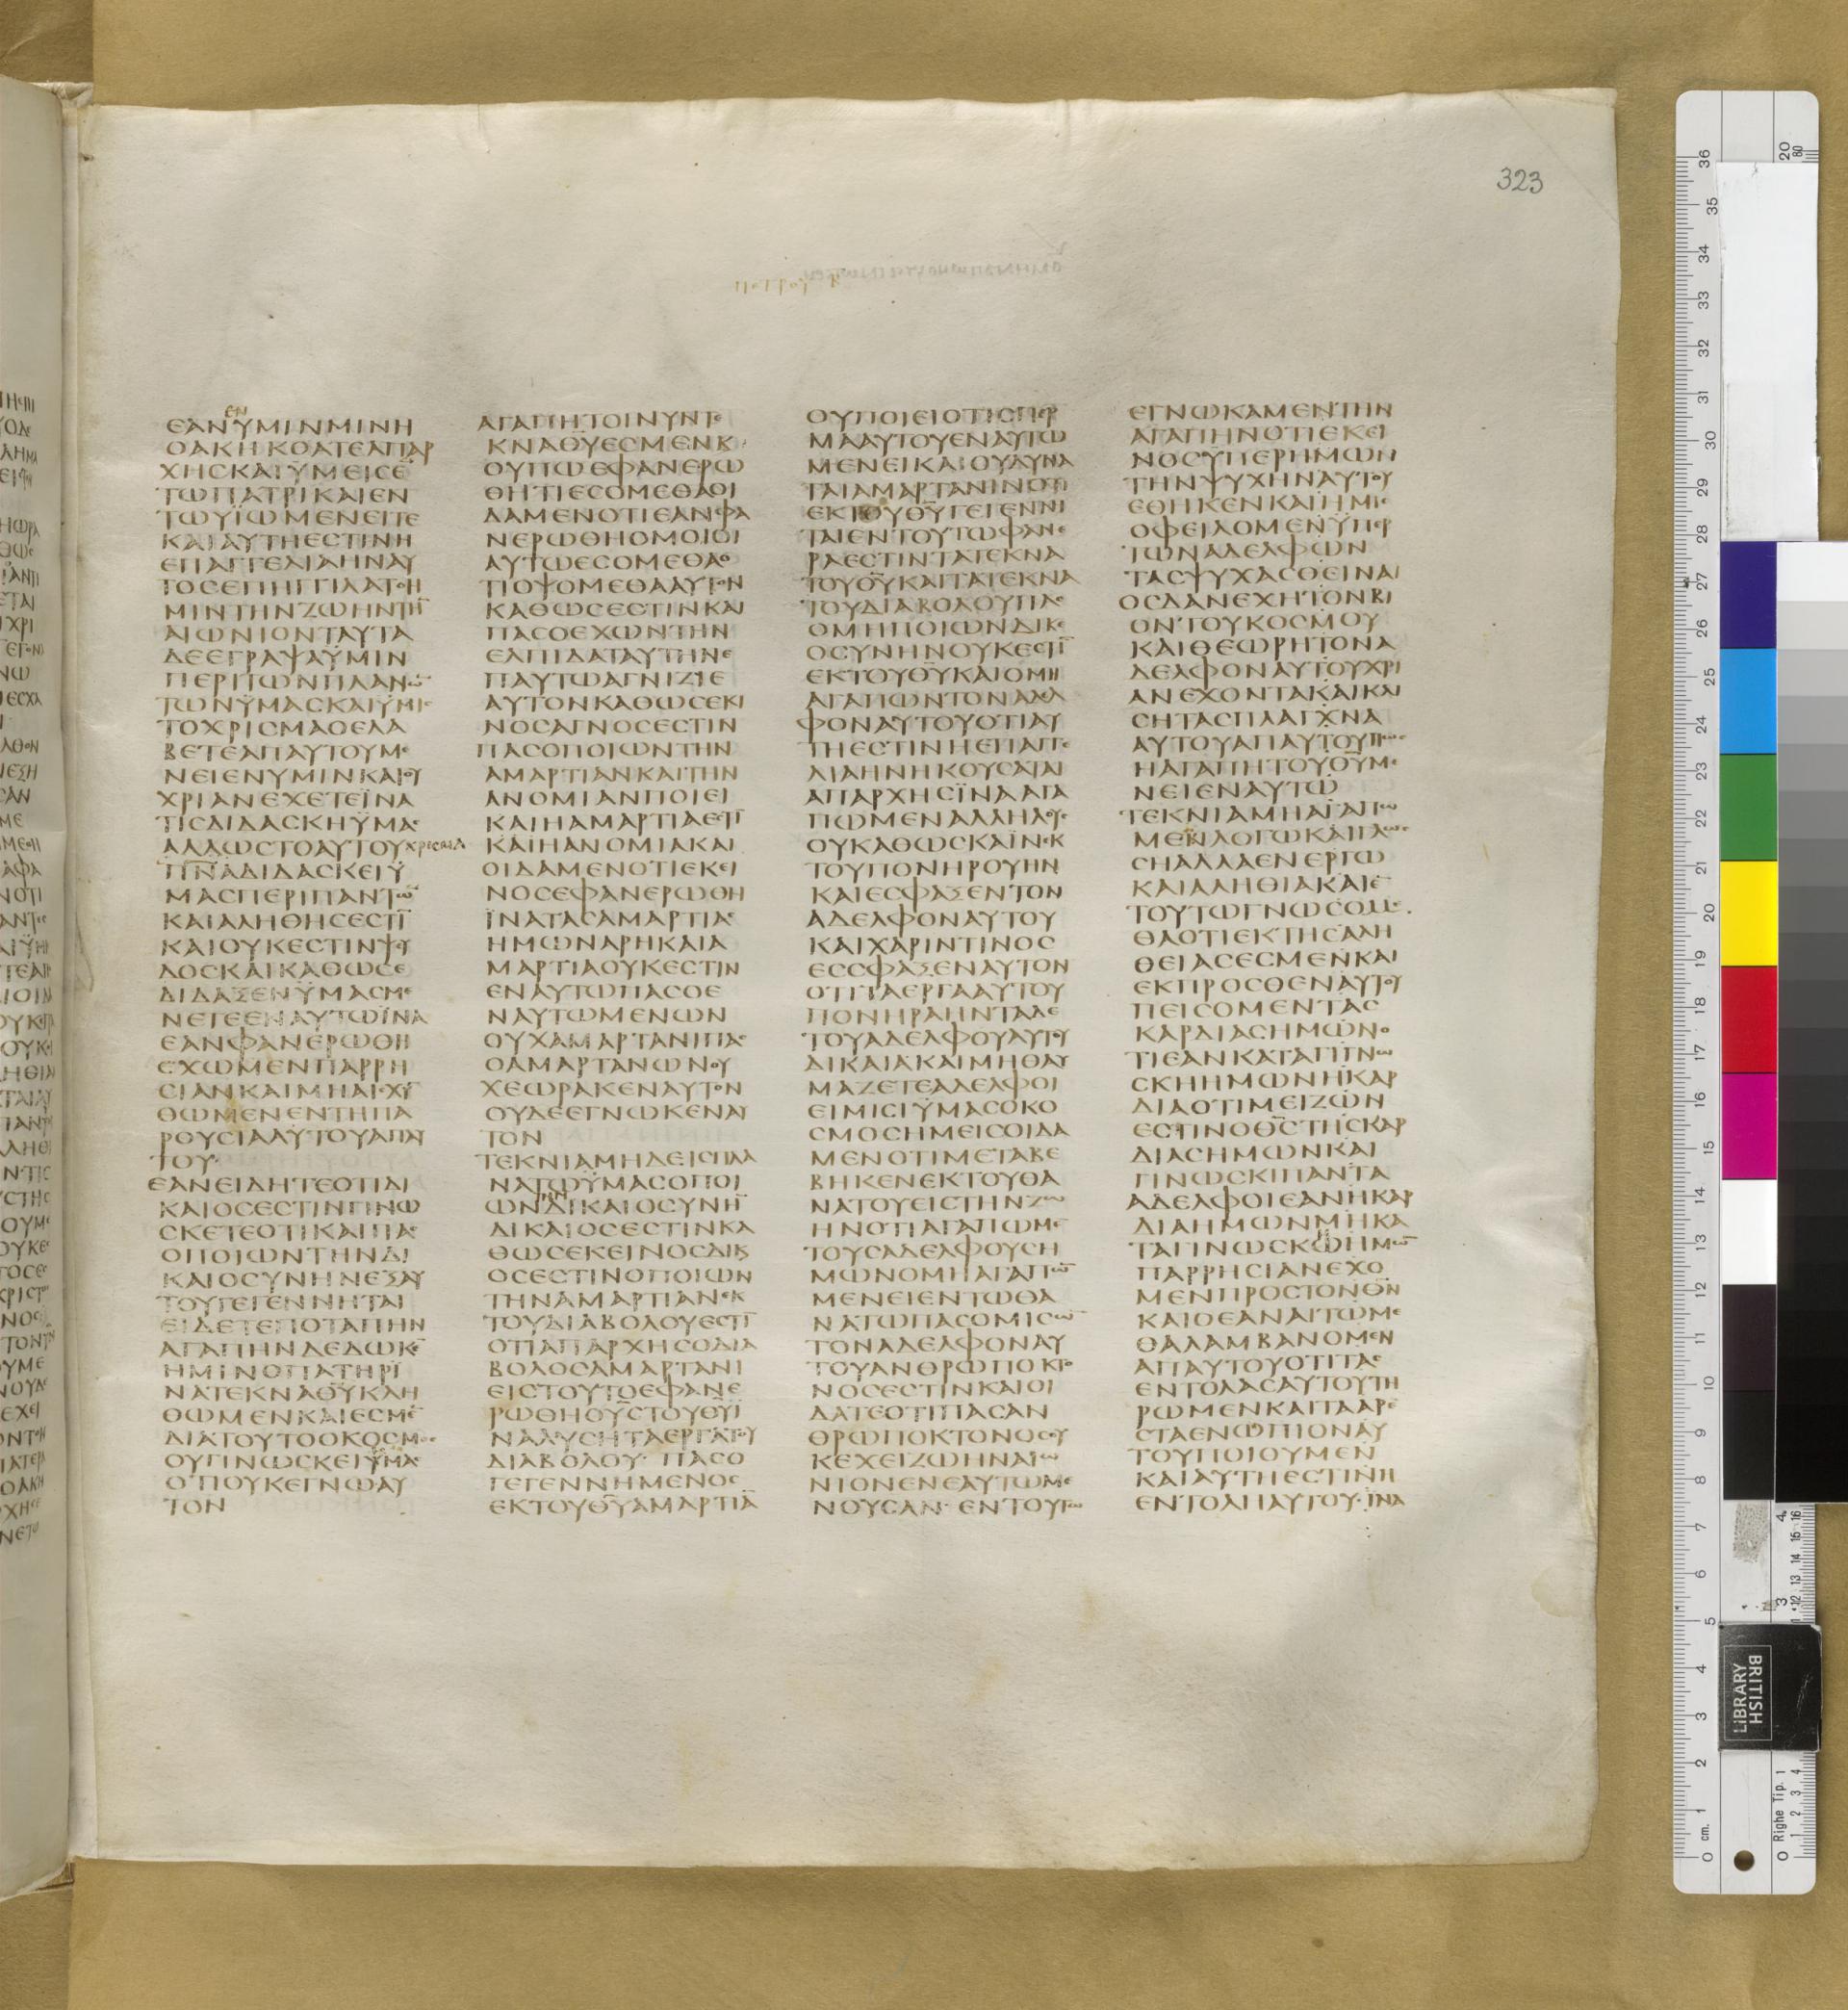 323
ΕΑΝΥΜΙΝΜΙΝΗ
ΟΑΚΗΚΟΑΤΕΑΠΑΡ
ΧΗϹΚΑΙΫΜΕΙϹΕ̅
ΤΩΠΑΤΡΙΚΑΙΕΝ
ΤΩΥΪΩΜΕΝΕΙΤΕ
ΚΑΙΑΥΤΗΕϹΤΙΝΗ
ΕΠΑΓΓΕΛΙΑΗΝΑΥ
ΤΟϹΕΠΗΓΓΙΛΑΤΟΗ
ΜΙΝΤΗΝΖΩΗΝΤΗ̅
ΑΙΩΝΙΟΝΤΑΥΤΑ
ΔΕΕΓΡΑΨΑΫΜΙΝ
ΠΕΡΙΤΩΝΠΛΑΝΩ̅
ΤΩΝΫΜΑϹΚΑΙΫΜΙϹ
ΤΟΧΡΙϹΜΑΟΕΛΑ
ΒΕΤΕΑΠΑΥΤΟΥΜΕ
ΝΕΙΕΝΥΜΙΝΚΑΙΟΥ
ΧΡΙΑΝΕΧΕΤΕΪΝΑ
ΤΙϹΔΙΔΑϹΚΗΫΜΑϹ
ΑΛΛΩϹΤΟΑΥΤΟΥΧΡΙϹΜΑ
ΠΝ̅ΑΔΙΔΑϹΚΕΙΫ
ΜΑϹΠΕΡΙΠΑΝΤΩ̅
ΚΑΙΑΛΗΘΗϹΕϹΤΙ̅
ΚΑΙΟΥΚΕϹΤΙΝΨΕΥ
ΔΟϹΚΑΙΚΑΘΩϹΕ
ΔΙΔΑΞΕΝΫΜΑϹΜΕ
ΝΕΤΕΕΝΑΥΤΩΪΝΑ
ΕΑΝΦΑΝΕΡΩΘΗ
ϹΧΩΜΕΝΠΑΡΡΗ
ϹΙΑΝΚΑΙΜΗΑΙϹΧΥ
ΘΩΜΕΝΕΝΤΗΠΑ
ΡΟΥϹΙΑΑΥΤΟΥΑΠΑΥ
ΤΟΥ
ΕΑΝΕΙΔΗΤΕΟΤΙΔΙ
ΚΑΙΟϹΕϹΤΙΝΓΙΝΩ
ϹΚΕΤΕΟΤΙΚΑΙΠΑϹ
ΟΠΟΙΩΝΤΗΝΔΙ
ΚΑΙΟϹΥΝΗΝΕΞΑΥ
ΤΟΥΓΕΓΕΝΝΗΤΑΙ
ΕΙΔΕΤΕΠΟΤΑΠΗΝ
ΑΓΑΠΗΝΔΕΔΩΚΕ̅
ΗΜΙΝΟΠΑΤΗΡΪ
ΝΑΤΕΚΝΑΘ̅Υ̅ΚΛΗ
ΘΩΜΕΝΚΑΙΕϹΜΕ̅
ΔΙΑΤΟΥΤΟΟΚΟϹΜΟϹ
ΟΥΓΙΝΩϹΚΕΙΫΜΑϹ
ΟΤΙΟΥΚΕΓΝΩΑΥ
ΤΟΝ
ΑΓΑΠΗΤΟΙΝΥΝΤΕ
ΚΝΑΘ̅Υ̅ΕϹΜΕΝΚΑΙ
ΟΥΠΩΕΦΑΝΕΡΩ
ΘΗΤΙΕϹΟΜΕΘΑΟΙ
ΔΑΜΕΝΟΤΙΕΑΝΦΑ
ΝΕΡΩΘΗΟΜΟΙΟΙ
ΑΥΤΩΕϹΟΜΕΘΑΟ
ΤΙΟΨΟΜΕΘΑΑΥΤΟΝ
ΚΑΘΩϹΕϹΤΙΝΚΑΙ
ΠΑϹΟΕΧΩΝΤΗΝ
ΕΛΠΙΔΑΤΑΥΤΗΝΕ
ΠΑΥΤΩΑΓΝΙΖΙΕ
ΑΥΤΟΝΚΑΘΩϹΕΚΙ
ΝΟϹΑΓΝΟϹΕϹΤΙΝ
ΠΑϹΟΠΟΙΩΝΤΗΝ
ΑΜΑΡΤΙΑΝΚΑΙΤΗΝ
ΑΝΟΜΙΑΝΠΟΙΕΙ
ΚΑΙΗΑΜΑΡΤΙΑΕϹΤΙ̅
ΚΑΙΗΑΝΟΜΙΑΚΑΙ
ΟΙΔΑΜΕΝΟΤΙΕΚΕΙ
ΝΟϹΕΦΑΝΕΡΩΘΗ
ΪΝΑΤΑϹΑΜΑΡΤΙΑϹ
ΗΜΩΝΑΡΗΚΑΙΑ
ΜΑΡΤΙΑΟΥΚΕϹΤΙΝ
ΕΝΑΥΤΩΠΑϹΟΕ
ΝΑΥΤΩΜΕΝΩΝ
ΟΥΧΑΜΑΡΤΑΝΙΠΑϹ
ΟΑΜΑΡΤΑΝΩΝΟΥ
ΧΕΩΡΑΚΕΝΑΥΤΟΝ
ΟΥΔΕΕΓΝΩΚΕΝΑΥ
ΤΟΝ
ΤΕΚΝΙΑΜΗΔΕΙϹΠΛΑ
ΝΑΤΩΫΜΑϹΟΠΟΙ
ΩΝΔΙΚΑΙΟϹΥΝΗ̅
ΔΙΚΑΙΟϹΕϹΤΙΝΚΑ
ΘΩϹΕΚΕΙΝΟϹΔΙΚΑΙ
ΟϹΕϹΤΙΝΟΠΟΙΩΝ
ΤΗΝΑΜΑΡΤΙΑΝΕΚ
ΤΟΥΔΙΑΒΟΛΟΥΕϹΤΙ̅
ΟΤΙΑΠΑΡΧΗϹΟΔΙΑ
ΒΟΛΟϹΑΜΑΡΤΑΝΙ
ΕΙϹΤΟΥΤΟΕΦΑΝΕ
ΡΩΘΗΟΥ̅Ϲ̅ΤΟΥΘ̅Υ̅Ϊ
ΝΑΛΥϹΗΤΑΕΡΓΑΤΟΥ
ΔΙΑΒΟΛΟΥ· ΠΑϹΟ
ΓΕΓΕΝΝΗΜΕΝΟϹ
ΕΚΤΟΥΘ̅Υ̅ΑΜΑΡΤΙΑ̅
ΟΥΠΟΙΕΙΟΤΙϹΠΕΡ
ΜΑΑΥΤΟΥΕΝΑΥΤΩ
ΜΕΝΕΙΚΑΙΟΥΔΥΝΑ
ΤΑΙΑΜΑΡΤΑΝΙΝΟΤΙ
ΕΚΤΟΥΘ̅Υ̅ΓΕΓΕΝΝΗ
ΤΑΙΕΝΤΟΥΤΩΦΑΝΕ
ΡΑΕϹΤΙΝΤΑΤΕΚΝΑ
ΤΟΥΘ̅Υ̅ΚΑΙΤΑΤΕΚΝΑ
ΤΟΥΔΙΑΒΟΛΟΥΠΑϹ
ΟΜΗΠΟΙΩΝΔΙΚΑΙ
ΟϹΥΝΗΝΟΥΚΕϹΤΙ̅
ΕΚΤΟΥΘ̅Υ̅ΚΑΙΟΜΗ
ΑΓΑΠΩΝΤΟΝΑΔΕΛ
ΦΟΝΑΥΤΟΥΟΤΙΑΥ
ΤΗΕϹΤΙΝΗΕΠΑΓΓΕ
ΛΙΑΗΝΗΚΟΥϹΑΤΑΙ
ΑΠΑΡΧΗϹΪΝΑΑΓΑ
ΠΩΜΕΝΑΛΛΗΛΟΥϹ
ΟΥΚΑΘΩϹΚΑΪΝΕΚ
ΤΟΥΠΟΝΗΡΟΥΗΝ
ΚΑΙΕϹΦΑΞΕΝΤΟΝ
ΑΔΕΛΦΟΝΑΥΤΟΥ
ΚΑΙΧΑΡΙΝΤΙΝΟϹ
ΕϹϹΦΑΞΕΝΑΥΤΟΝ
ΟΤΙΤΑΕΡΓΑΑΥΤΟΥ
ΠΟΝΗΡΑΗΝΤΑΔΕ
ΤΟΥΑΔΕΛΦΟΥΑΥΤΟΥ
ΔΙΚΑΙΑΚΑΙΜΗΘΑΥ
ΜΑΖΕΤΕΑΔΕΛΦΟΙ
ΕΙΜΙϹΙΫΜΑϹΟΚΟ
ϹΜΟϹΗΜΕΙϹΟΙΔΑ
ΜΕΝΟΤΙΜΕΤΑΒΕ
ΒΗΚΕΝΕΚΤΟΥΘΑ
ΝΑΤΟΥΕΙϹΤΗΝΖΩ
ΗΝΟΤΙΑΓΑΠΩΜΕ̅
ΤΟΥϹΑΔΕΛΦΟΥϹΗ
ΜΩΝΟΜΗΑΓΑΠΩ̅
ΜΕΝΕΙΕΝΤΩΘΑ
ΝΑΤΩΠΑϹΟΜΙϹΩ̅
ΤΟΝΑΔΕΛΦΟΝΑΥ
ΤΟΥΑΝΘΡΩΠΟΚΤΟ
ΝΟϹΕϹΤΙΝΚΑΙΟΙ
ΔΑΤΕΟΤΙΠΑϹΑΝ
ΘΡΩΠΟΚΤΟΝΟϹΟΥ
ΚΕΧΕΙΖΩΗΝΑΙΩ
ΝΙΟΝΕΝΕΑΥΤΩΜΕ
ΝΟΥϹΑΝ· ΕΝΤΟΥΤΩ
ΕΓΝΩΚΑΜΕΝΤΗΝ
ΑΓΑΠΗΝΟΤΙΕΚΕΙ
ΝΟϹΥΠΕΡΗΜΩΝ
ΤΗΝΨΥΧΗΝΑΥΤΟΥ
ΕΘΗΚΕΝΚΑΙΗΜΙϹ
ΟΦΕΙΛΟΜΕΝΫΠΕΡ
ΤΩΝΑΔΕΛΦΩΝ
ΤΑϹΨΥΧΑϹΘΕΙΝΑΙ
ΟϹΔΑΝΕΧΗΤΟΝΒΙ
ΟΝΤΟΥΚΟϹΜΟΥ
ΚΑΙΘΕΩΡΗΤΟΝΑ
ΔΕΛΦΟΝΑΥΤΟΥΧΡΙ
ΑΝΕΧΟΝΤΑΚΑΙΚΛΙ
ϹΗΤΑϹΠΛΑΓΧΝΑ
ΑΥΤΟΥΑΠΑΥΤΟΥΠΩϹ
ΗΑΓΑΠΗΤΟΥΘ̅Υ̅ΜΕ
ΝΕΙΕΝΑΥΤΩ
ΤΕΚΝΙΑΜΗΑΓΑΠΩ
ΜΕΝΛΟΓΩΚΑΙΓΛΩϹ
ϹΗΑΛΛΑΕΝΕΡΓΩ
ΚΑΙΑΛΗΘΙΑΚΑΙΕ̅
ΤΟΥΤΩΓΝΩϹΟΜΕ
ΘΑΟΤΙΕΚΤΗϹΑΛΗ
ΘΕΙΑϹΕϹΜΕΝΚΑΙ
ΕΚΠΡΟϹΘΕΝΑΥΤΟΥ
ΠΕΙϹΟΜΕΝΤΑϹ
ΚΑΡΔΙΑϹΗΜΩΝΟ
ΤΙΕΑΝΚΑΤΑΓΙΓΝΩ
ϹΚΗΗΜΩΝΗΚΑΡ
ΔΙΑΟΤΙΜΕΙΖΩΝ
ΕϹΤΙΝΟΘ̅Ϲ̅ΤΗϹΚΑΡ
ΔΙΑϹΗΜΩΝΚΑΙ
ΓΙΝΩϹΚΙΠΑΝΤΑ
ΑΔΕΛΦΟΙΕΑΝΗΚΑΡ
ΔΙΑΗΜΩΝΜΗΚΑ
ΤΑΓΙΝΩϹΚΩΗΜΩ̅
ΠΑΡΡΗϹΙΑΝΕΧΟ
ΜΕΝΠΡΟϹΤΟΝΘ̅Ν̅
ΚΑΙΟΕΑΝΑΙΤΩΜΕ
ΘΑΛΑΜΒΑΝΟΜΕΝ
ΑΠΑΥΤΟΥΟΤΙΤΑϹ
ΕΝΤΟΛΑϹΑΥΤΟΥΤΗ
ΡΩΜΕΝΚΑΙΤΑΑΡΕ
ϹΤΑΕΝΩΠΙΟΝΑΥ
ΤΟΥΠΟΙΟΥΜΕΝ
ΚΑΙΑΥΤΗΕϹΤΙΝΗ
ΕΝΤΟΛΗΑΥΤΟΥ·ΪΝΑ
BRITISH LIBRARY
0 cm. 1 2 3 4 5 6 7 8 9 10 11 12 13 14 15 16 17 18 19 20 21 22 23 24 25 26 27 28 29 30 31 32 33 34 35 36
0 Righe Tip. 1